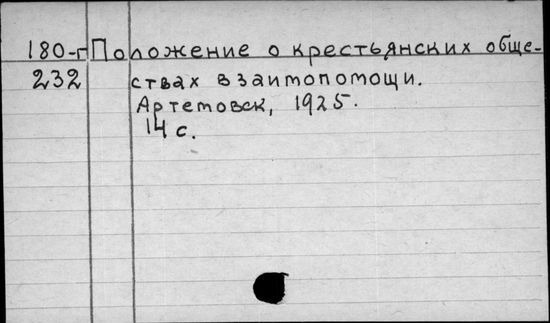 180-г Положение о крестьянских обще-
232 ствах взаимопомощи.
Артемовск, 1925.
14 с.